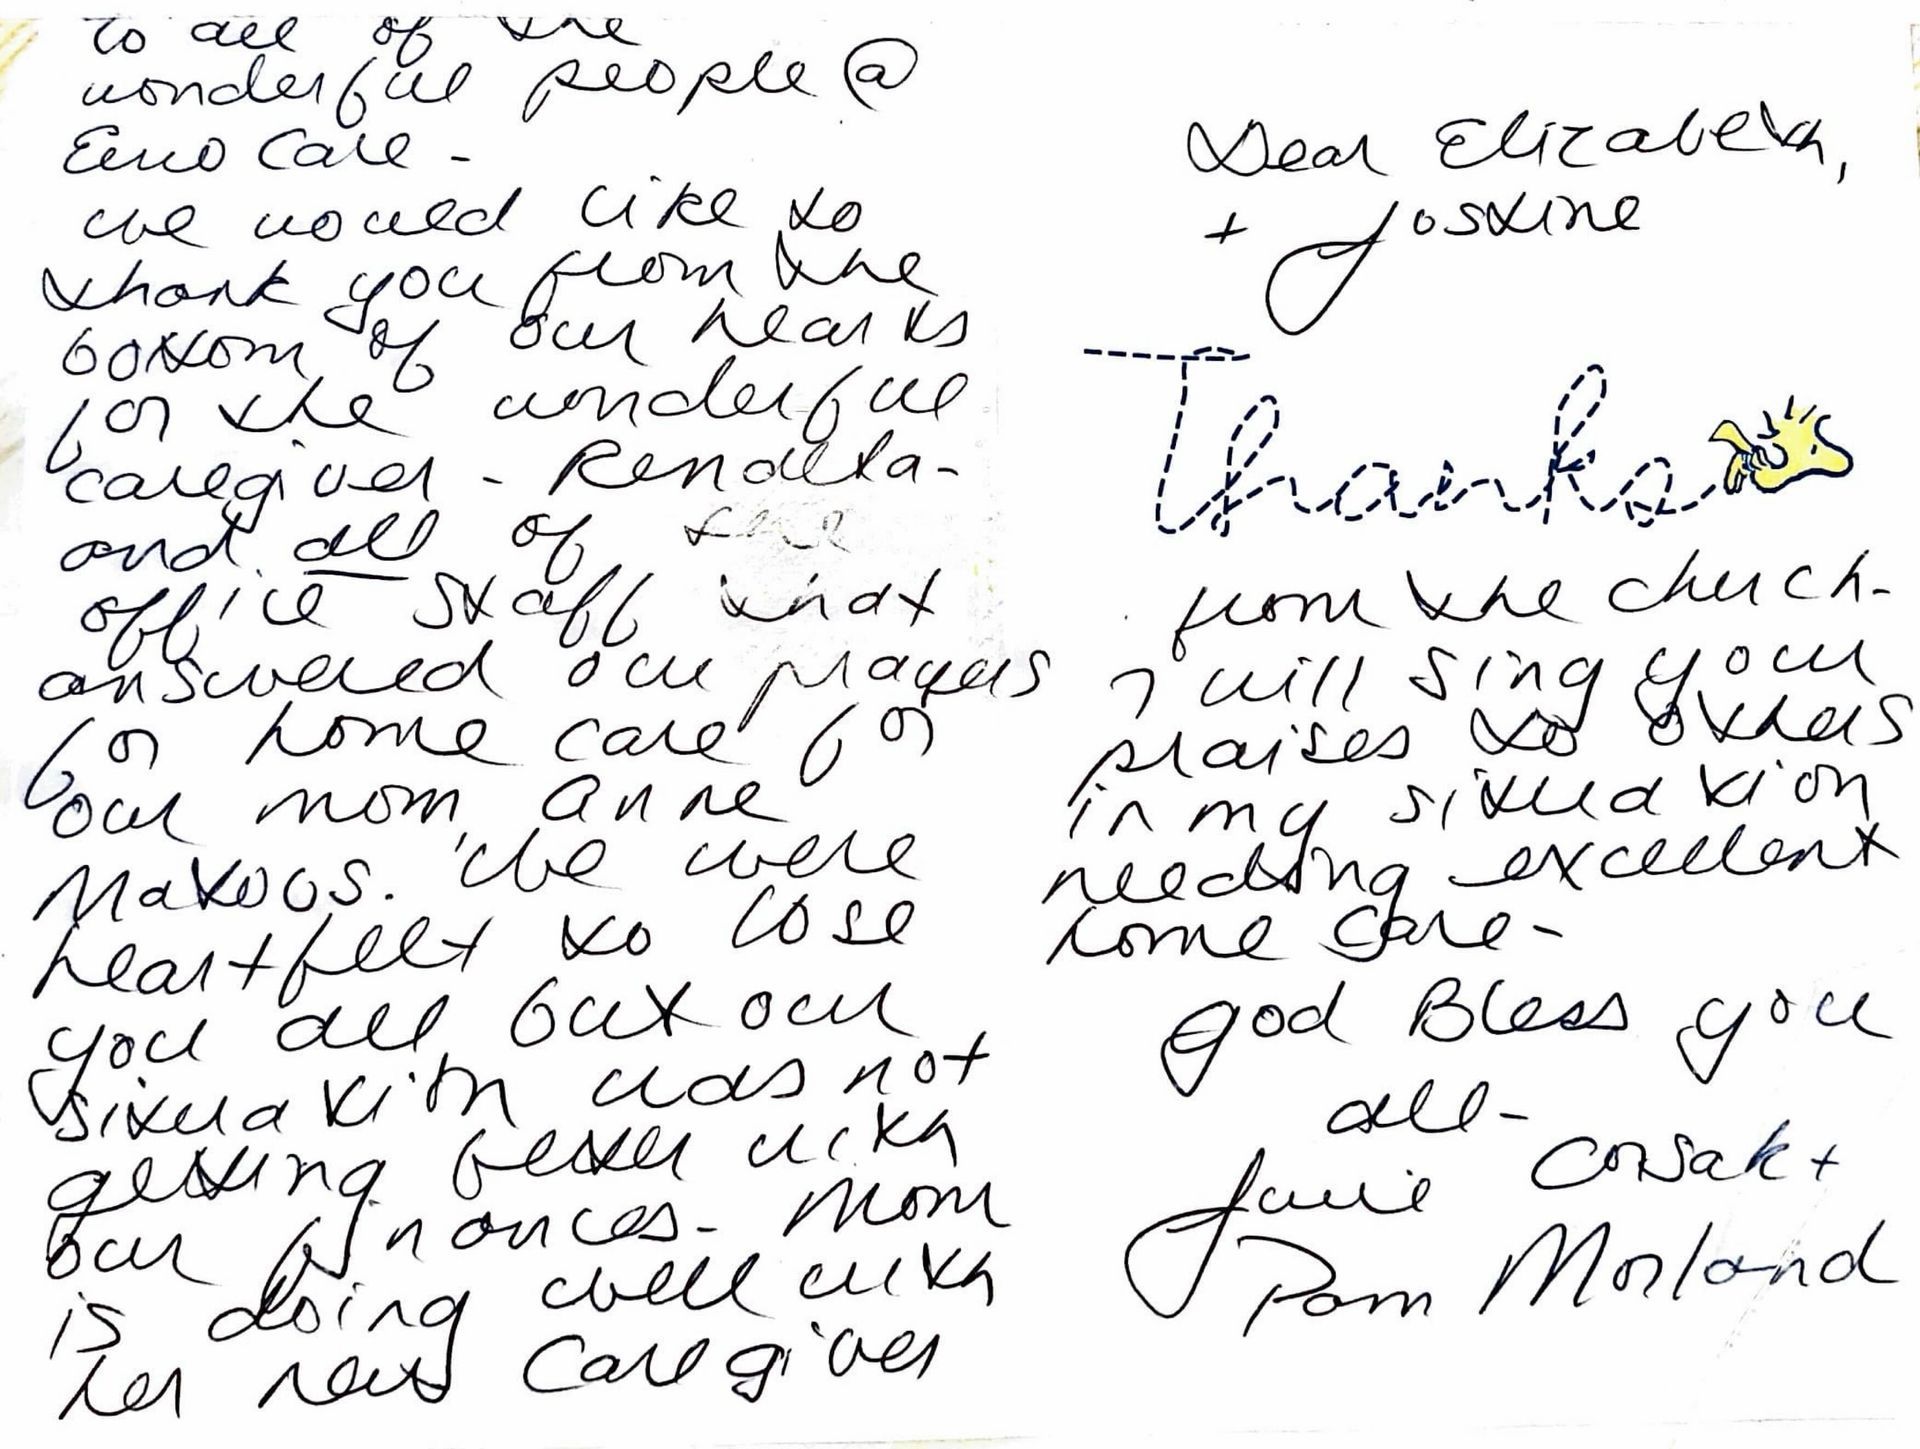 to all of the
wonderful people @
Euro Care -
we would like to
thank you from the
bottom of our hearts
for the wonderful
caregiver - Renaeta -
and all of the
office staff that
answered our prayers
for home care for
our mom, Anne
Matoos. We were
heartfelt to lose
you all but our
situation was not
getting better with
our finances. Mom
is doing well with
her new Caregiver
Dear Elizabeth,
+ Jostine
Thanks
from the church.
I will sing your
praises to others
in my situation
needing excellent
home care -
God Bless you
all -
Corsak +
Pam Morland